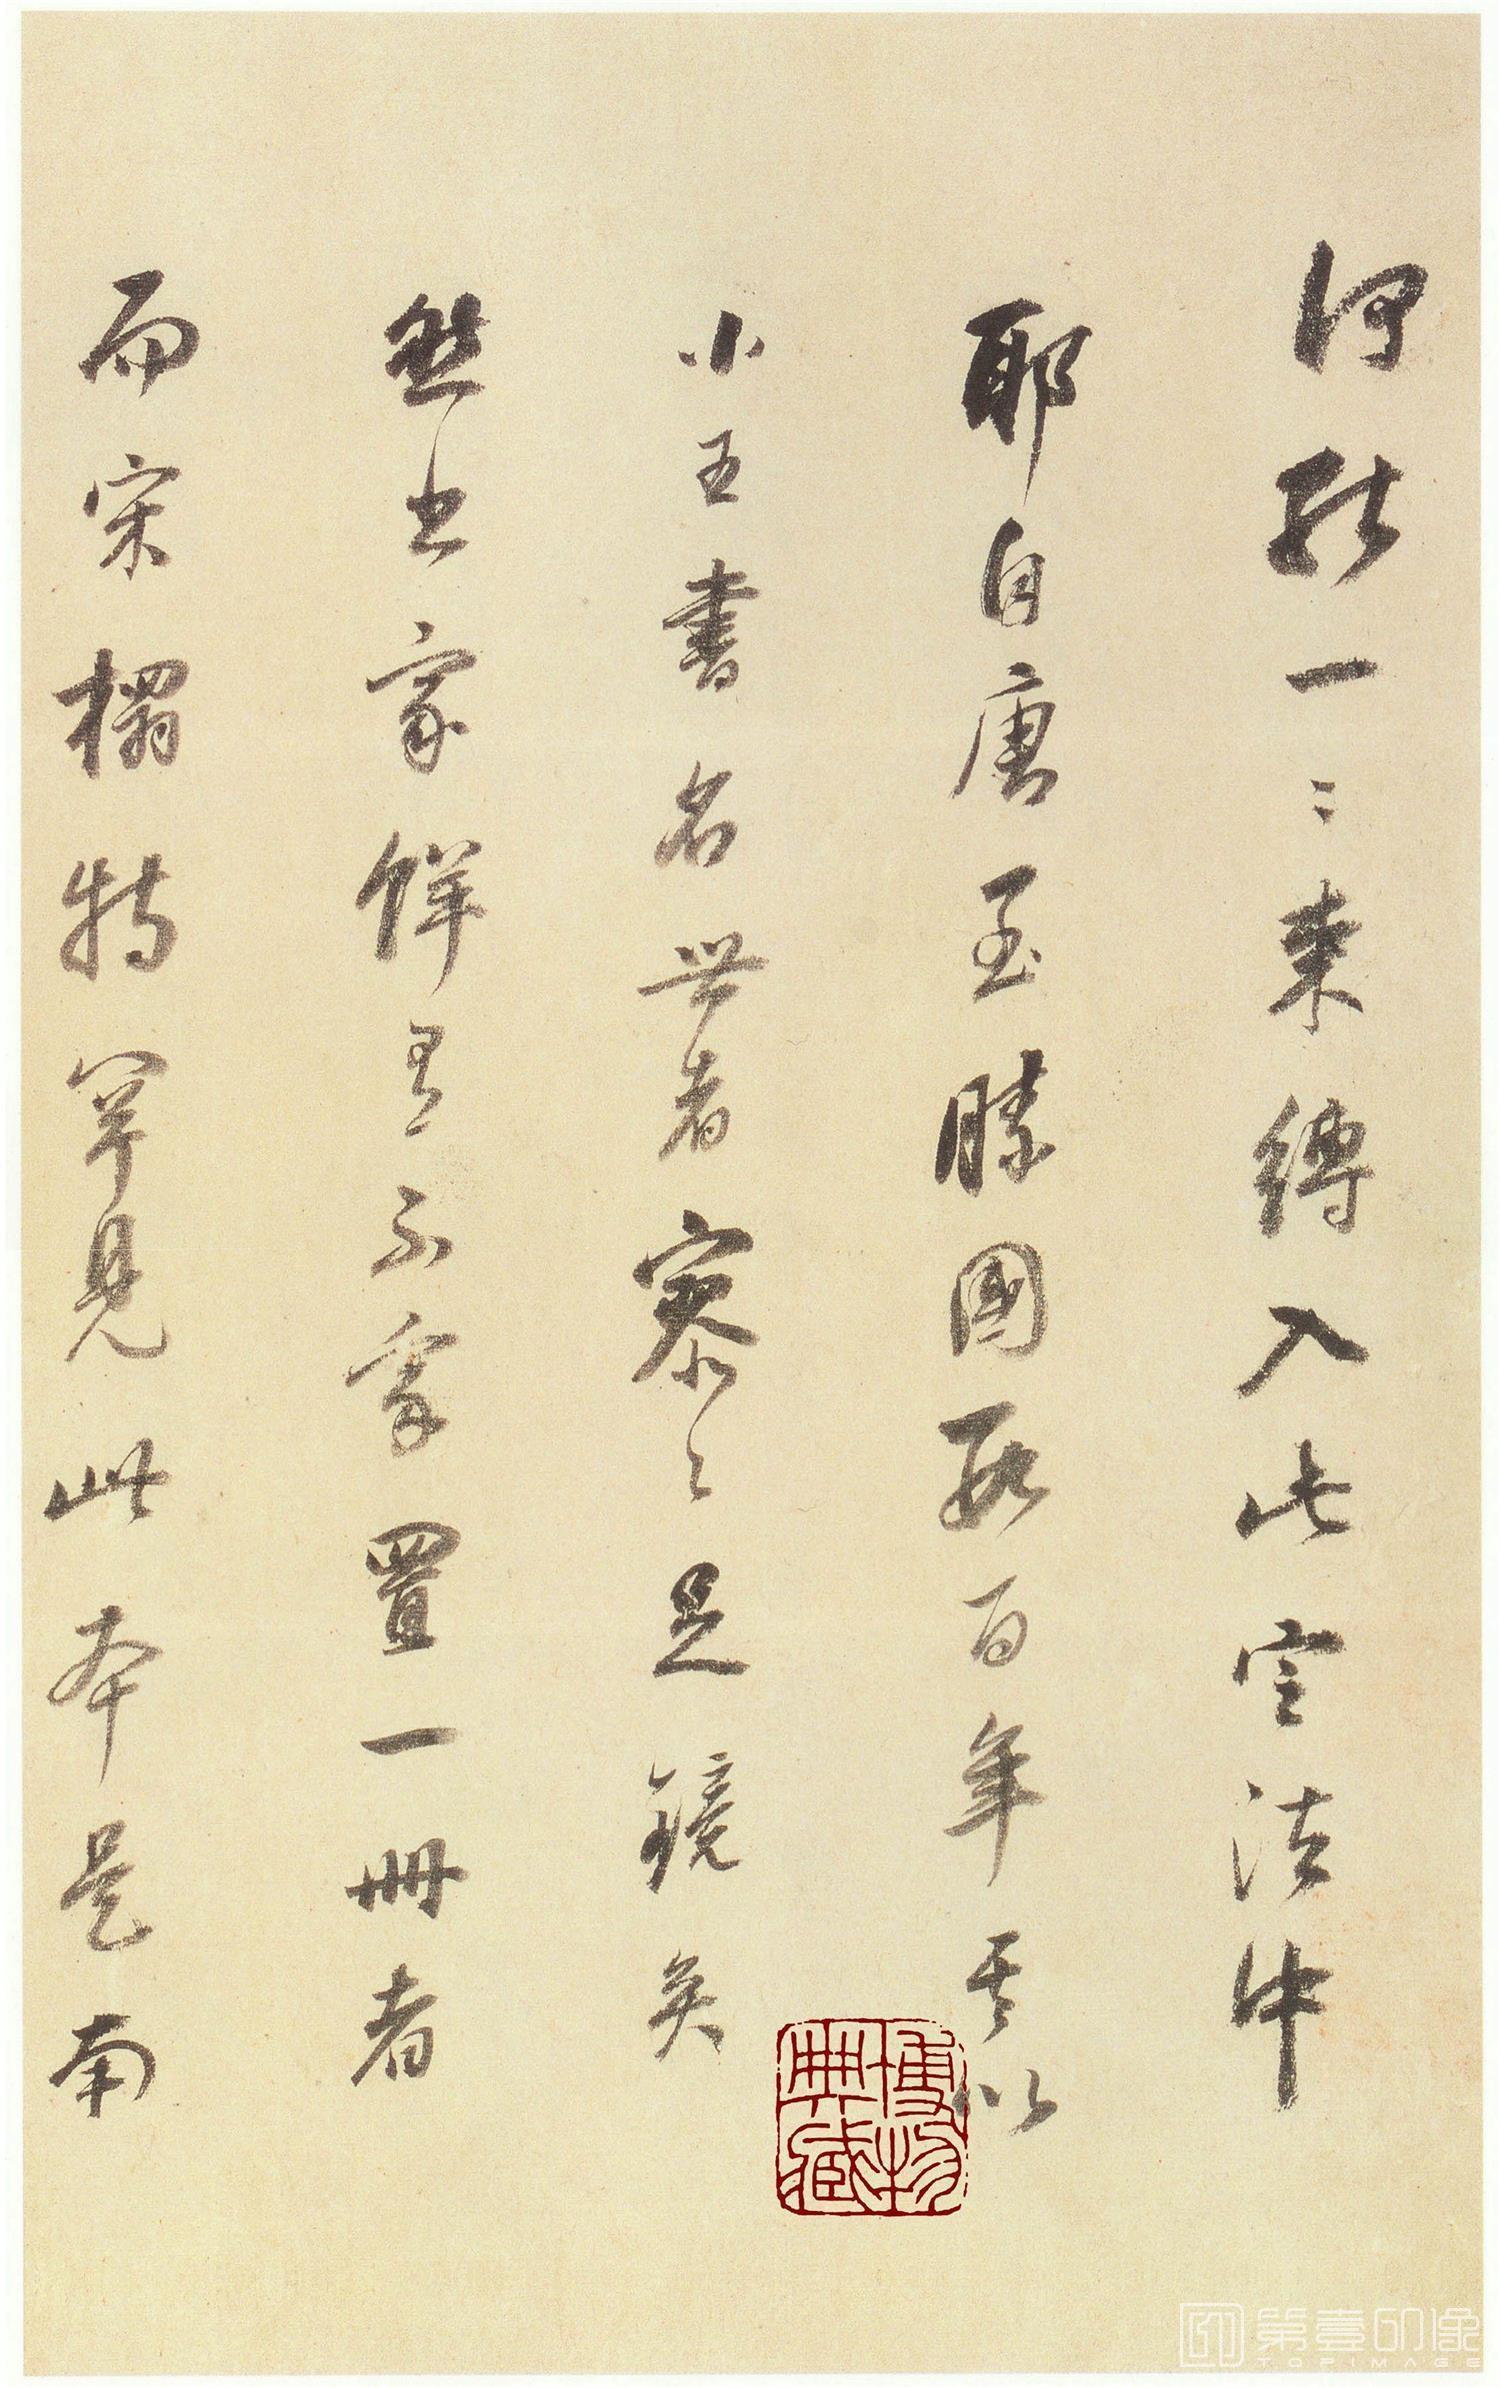 何能一々束縛入此定法中
耶自唐至勝國數百年其以
小王書名世者寥々足鏡矣
然書家餅有不家置一冊者
而宋榻特罕見此本是南
博物
典藏
第壹印像
TOPIMAGE